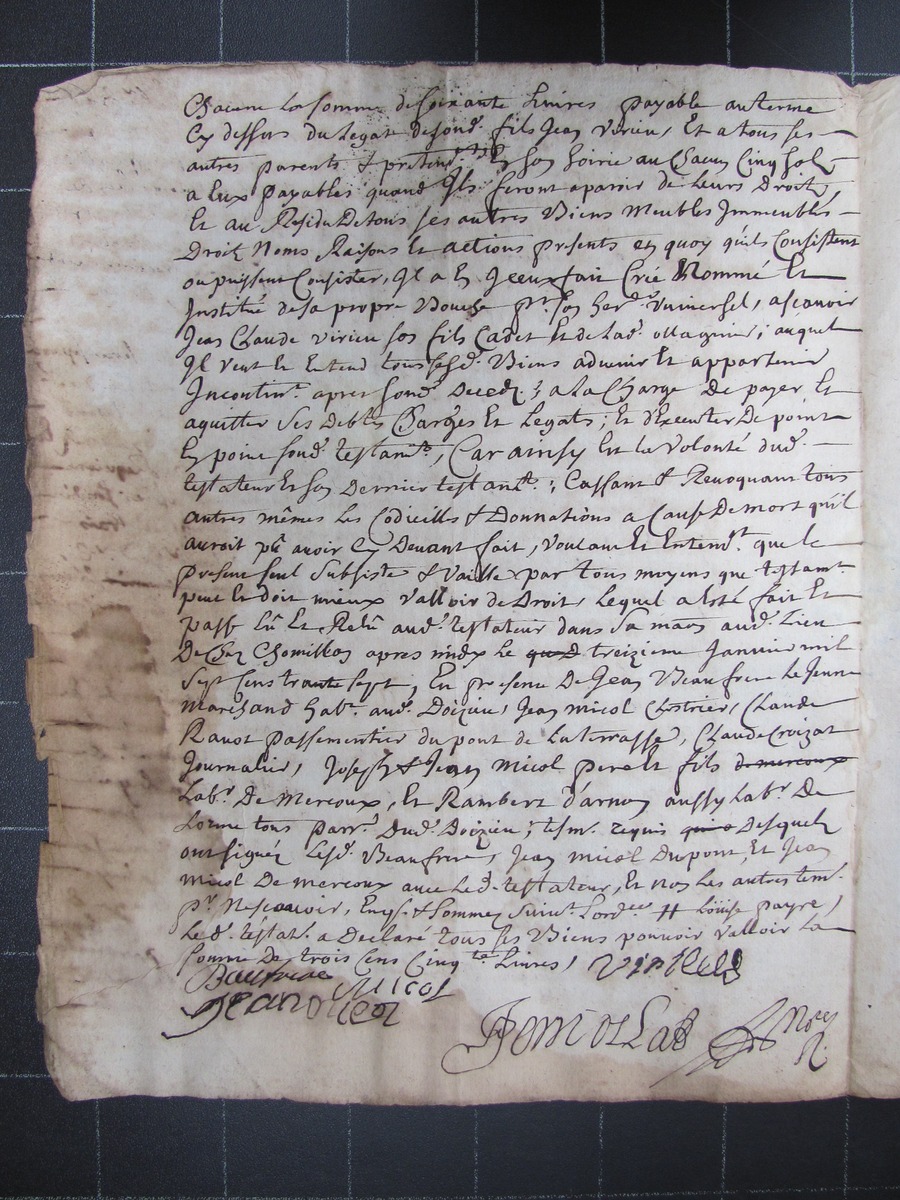 Chacune la somme de soixante Livres payable au terme
Cy dessus du Legat de sond. fils Jean virieu, Et a tous ses
autres parents & pretend. En son hoirie au Chacun Cinq sols
a Eux payables quand Ils seront aparoir de Leurs Droits,
Et au Residu De tous ses autres Biens Meubles Immeubles
Droits Noms Raisons Et actions presents en quoy quils Consistent
ou puissent Consister, Il a En Iceux fait Crié Nommé Et
Institué de sa propre Bouche pr. son her. vniversel, ascavoir
Jean Claude virieu son fils Cadet Et de lad. ollagnier; auquel
Il veut Et Entend tous sesd. Biens advenir Et appartenir
Incontint. apres sond. Deced. ; a la Charge De payer Et
aquitter ses Debtes Charges Et Legats; Et d'Executer De point
En point sond. testamt., Car ainsy Est la volonté dud.
testateur Et son Dernier testamt. ; Cassant & Revoquant tous
autres mêmes Les Codicills & Donnations a Cause De mort qu'il
auroit pû avoir Cy Devant fait, voulant Et Entendt. que le
present seul subsiste & vaille par tous moyens que testamt.
peut Et doit mieux valloir de Droit, Lequel a Esté fait Et
passé Lû Et Relû aud. testateur dans sa mason aud. Lieu
De Chez Chomillon apres midy Le treizieme Janvier mil
sept Cens trante sept, En presence De Jean Beaufrere Le Jeune
Marchand habt. aud. Doizieu, Jean micol Clostrier, Claude
Ravot passementier du pont de La terrasse, Claude Croizat
Journalier, Joseph & Jean Micol pere Et fils de mercoux
Labr. De Mercoux, Et Rambert d'arnon aussy Labr. De
Lorme tous parr. Dud. Doizieu; tesm. requis Desquels
ont signéz Lesd. Beaufrere, Jean micol Dupont, Et Jean
Micol De mercoux avec Le d. testateur, Et non les autres tem.
pr. Ne scavoir, Enqs. & sommes suivt. Lord.ce # Loüise payre,
Le d. testat. a Declaré tous ses Biens pouvoir valloir La
somme De trois Cens Cinqte. Livres,
Baufrere
Micol
Jean Micol